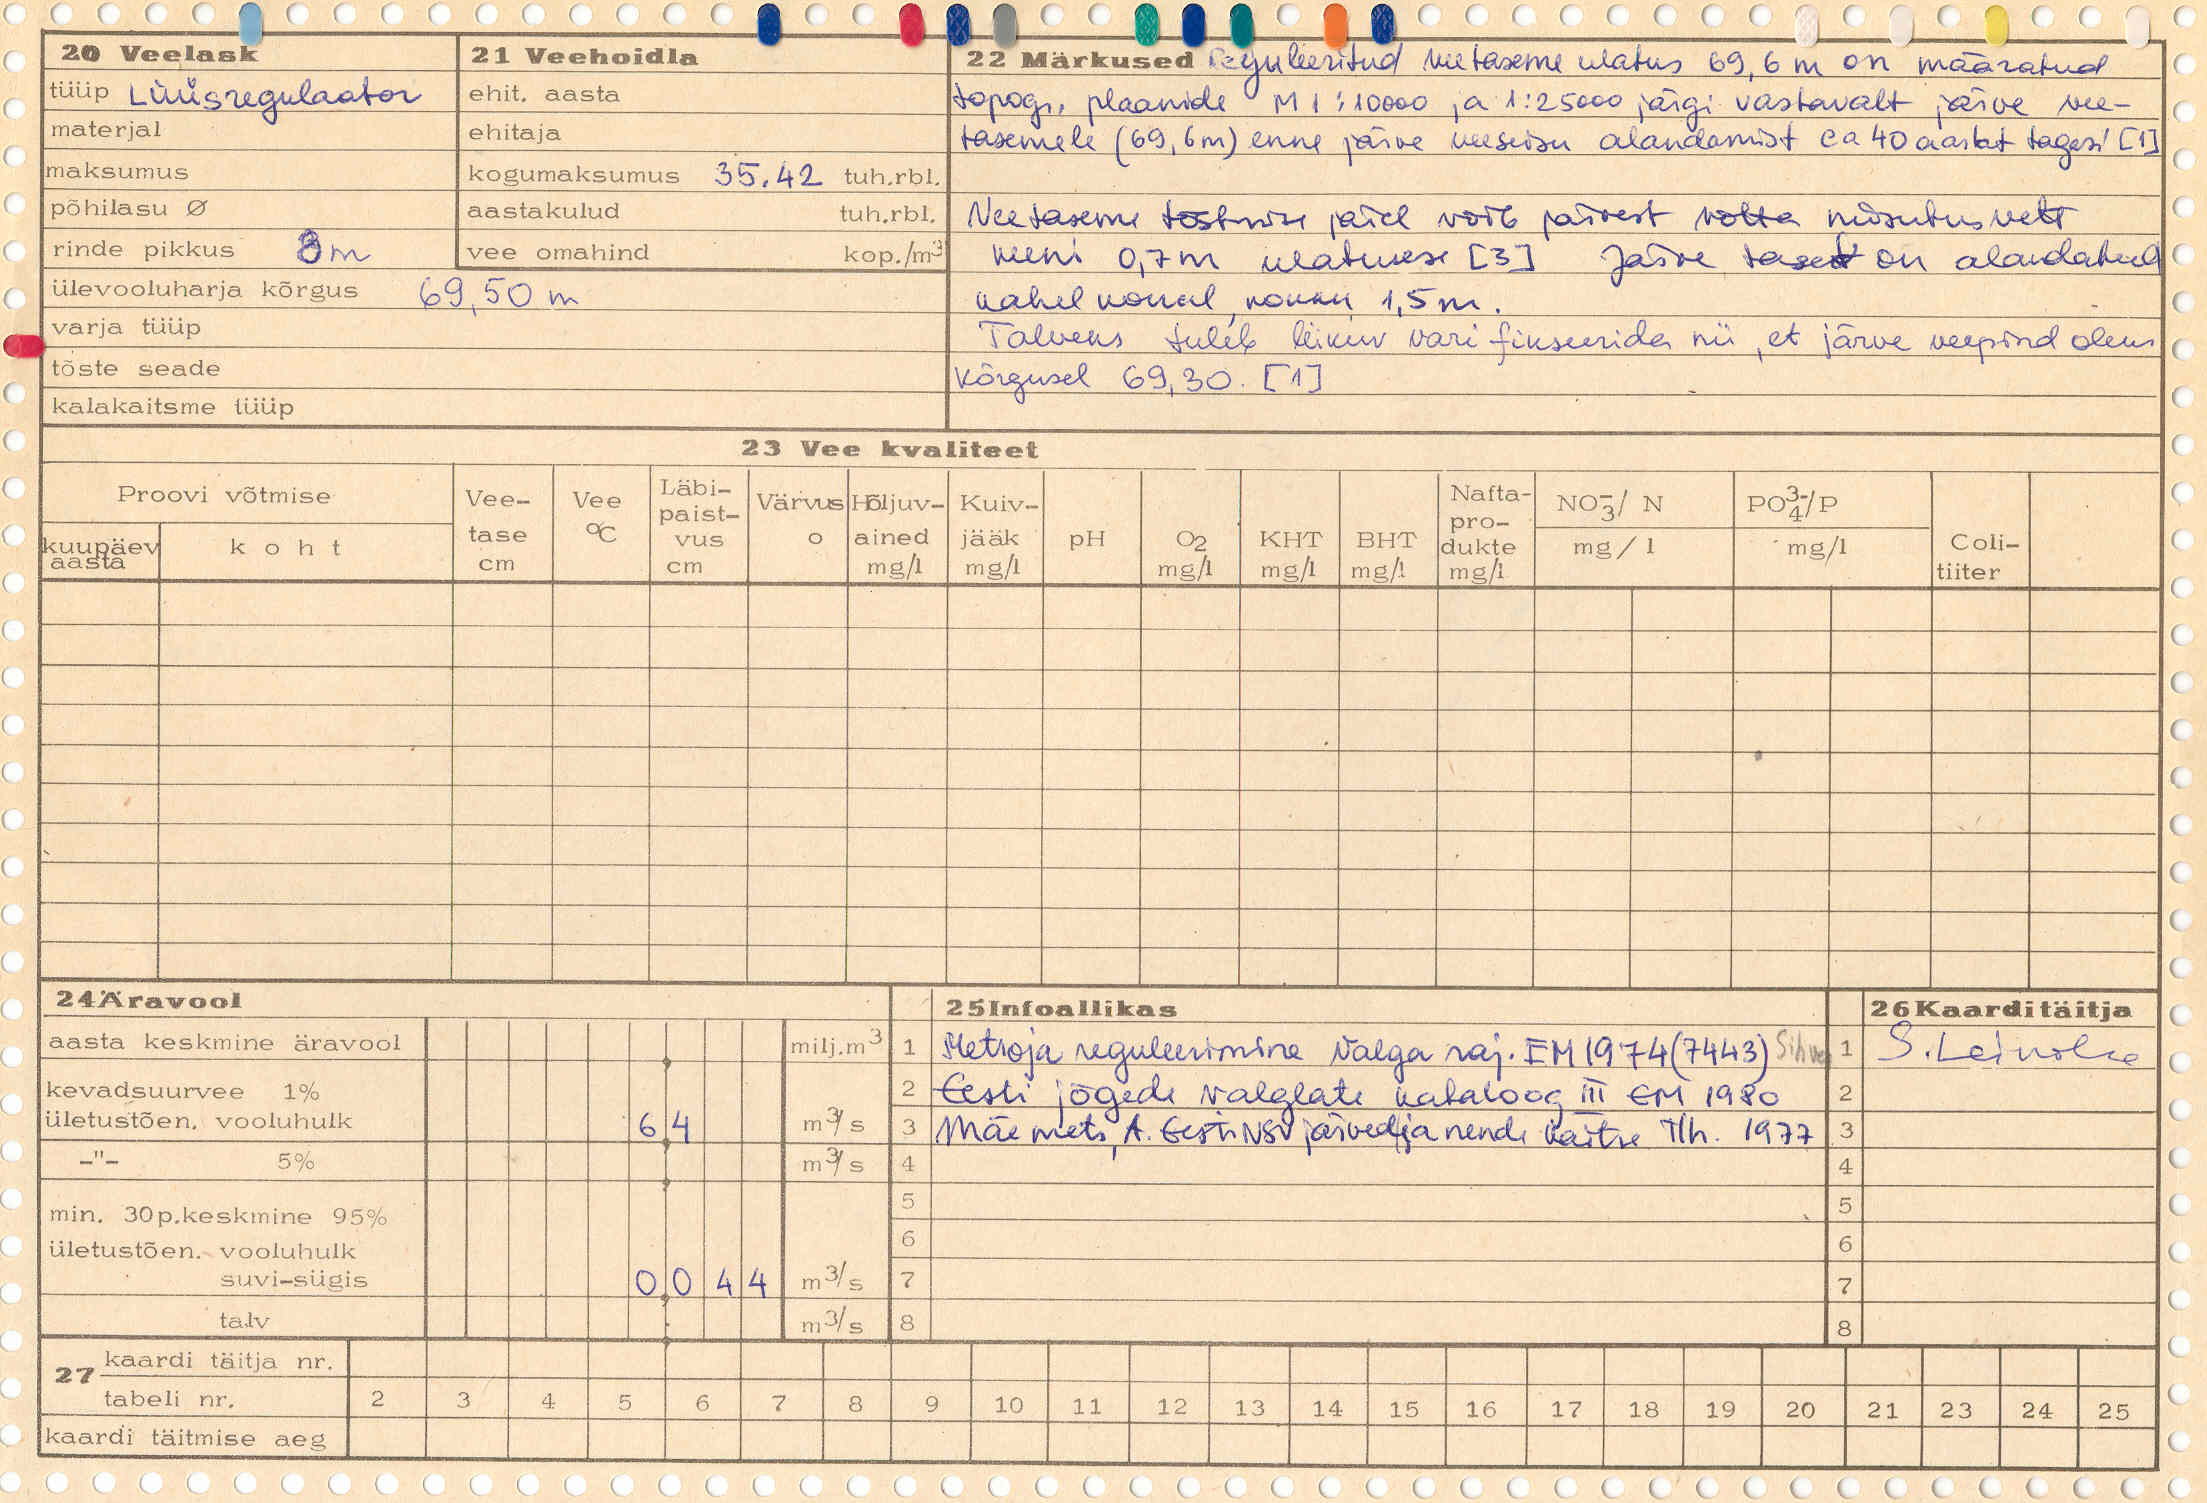 20 Veelask
tüüp Lüüsregulaator
materjal
maksumus
põhilasu Ø
rinde pikkus 8m
ülevooluharja kõrgus 69,50 m
varja tüüp
tõste seade
kalakaitsme tüüp
21 Veehoidla
ehit. aasta
ehitaja
kogumaksumus 35.42 tuh.rbl.
aastakulud tuh.rbl.
vee omahind kop./m³
22 Märkused Reguleeritud veetaseme ulatus 69,6 m on määratud
topogr. plaanide M 1:10000 ja 1:25000 järgi vastavalt järve vee-
tasemele (69,6m) enne järve veeseisu alandamist ca 40 aastat tagasi [1]
Veetaseme tõstmise järel võib järvest võtta niisutusvett
kuni 0,7m ulatuses [3] Järve taset on alandatud
kahel korral, kokku 1,5m.
Talveks tuleb liikuv vari fikseerida nii, et järve veepind oleks
kõrgusel 69,30. [1]
23 Vee kvaliteet
Proovi võtmise
kuupäev aasta
koht
Vee-tase cm
Vee °C
Läbi-paist-vus cm
Värvus o
Hõljuv-ained mg/l
Kuiv-jääk mg/l
pH
O2 mg/l
KHT mg/l
BHT mg/l
Nafta-pro-dukte mg/l
NO3-/ N mg/l
PO4 3-/P mg/l
Coli-tiiter
24 Äravool
aasta keskmine äravool milj.m³
kevadsuurvee 1%
ületustõen. vooluhulk 6,4 m³/s
-"- 5% m³/s
min. 30p.keskmine 95%
ületustõen. vooluhulk
suvi-sügis 0,044 m³/s
talv m³/s
25 Infoallikas
1 Metsoja reguleerimine Valga raj. EM 1974 (7443)
2 Eesti jõgede valglate kataloog III EM 1980
3 Mäemets, A. Eesti NSV järved ja nende kaitse Tln. 1977
4
5
6
7
8
26 Kaarditäitja
1
2
3
4
5
6
7
8
27 kaardi täitja nr.
tabeli nr. 2 3 4 5 6 7 8 9 10 11 12 13 14 15 16 17 18 19 20 21 23 24 25
kaardi täitmise aeg